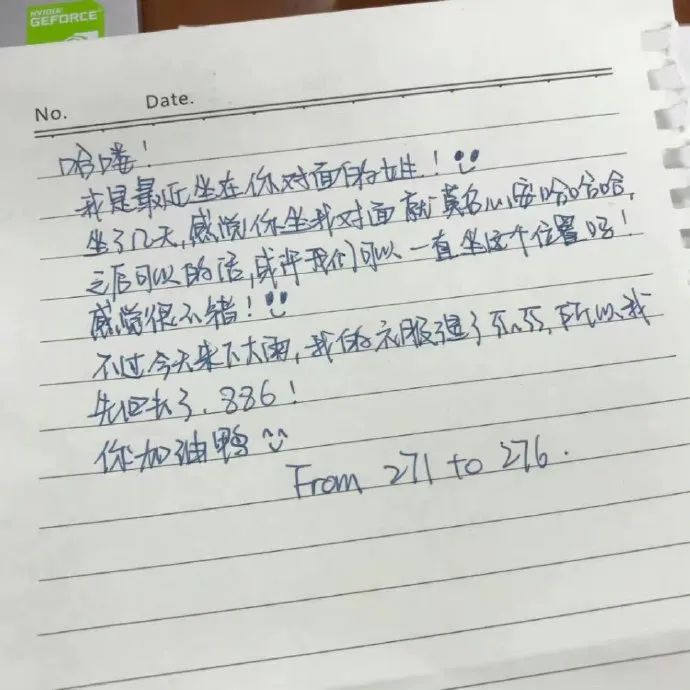 NVIDIA
GEFORCE
No. Date.
哈喽!
我是最近坐在你对面的女生!
坐了几天,感觉你坐我对面就莫名心安哈哈哈,
之后可以的话,或许我们可以一直坐这个位置呀!
感觉很不错!
不过今天来下大雨,我的衣服湿了TT,所以我
先回去了.886!
你加油鸭
From 271 to 276.